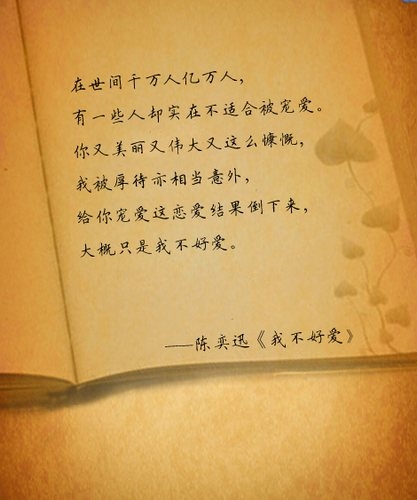 在世间千万人亿万人，
有一些人却实在不适合被宠爱。
你又美丽又伟大又这么慷慨，
我被厚待亦相当意外，
给你宠爱这恋爱结果倒下来，
大概只是我不好爱。
——陈奕迅《我不好爱》